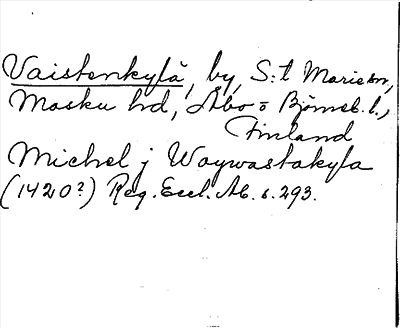 Vaistenkylä, by, S:t Mariesn,
Masku hd, Åbo o Björneb. l.,
Finland
Michel j Waywastakyla
(1420?) Reg. Eccl. Ab. s. 293.